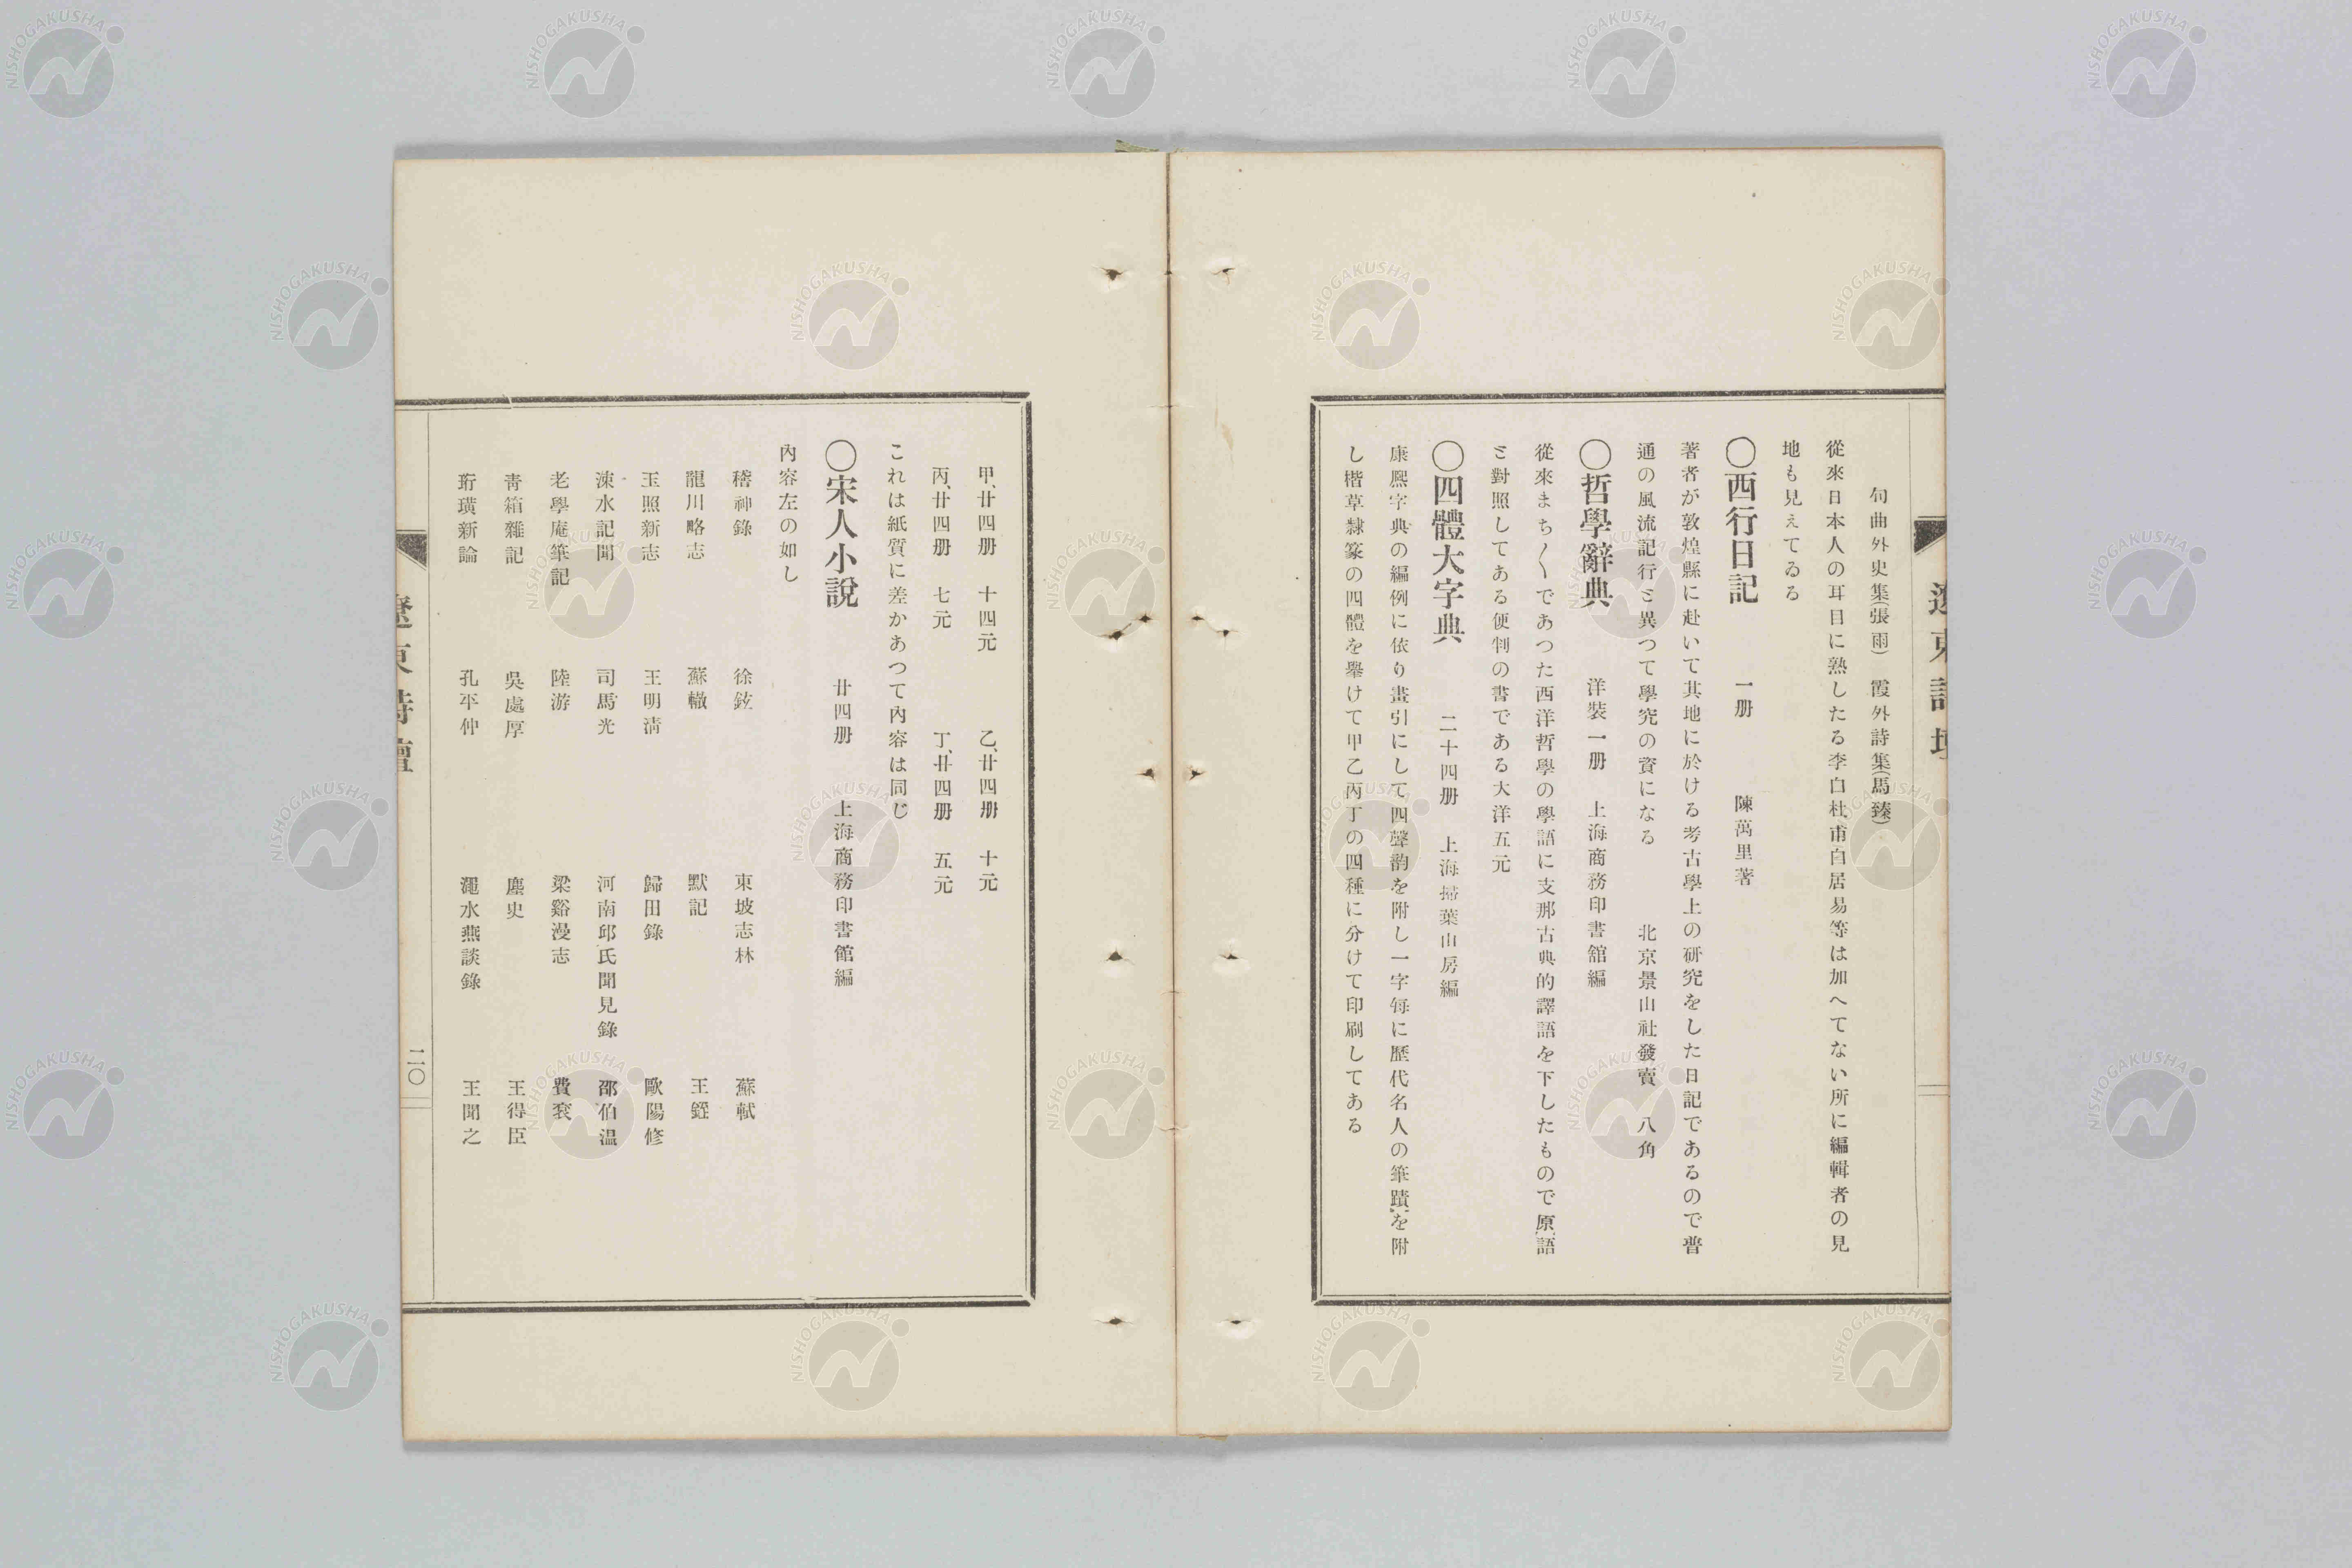 遼東詩壇
句曲外史集(張雨) 霞外詩集(馬臻)
從來日本人の耳目に熟したる李白杜甫白居易等は加へてない所に編輯者の見
地も見えてゐる
〇西行日記 一册 陳萬里著
著者が敦煌縣に赴いて其地に於ける考古學上の研究をした日記であるので普
通の風流記行と異つて學究の資になる 北京景山社發賣 八角
〇哲學辭典 洋裝一册 上海商務印書館編
從來まち〱であつた西洋哲學の學語に支那古典的譯語を下したもので原語
と對照してある便判の書である大洋五元
〇四體大字典 二十四册 上海掃葉山房編
康熈字典の編例に依り畫引にして四聲韵を附し一字每に歷代名人の筆蹟を附
し楷草隸篆の四體を擧けて甲乙丙丁の四種に分けて印刷してある
甲、廿四册 十四元 乙、廿四册 十元
丙、廿四册 七元 丁、廿四册 五元
これは紙質に差かあつて內容は同じ
〇宋人小說 廿四册 上海商務印書館編
內容左の如し
稽神錄 徐鉉 東坡志林 蘇軾
龍川略志 蘇轍 默記 王銍
玉照新志 王明淸 歸田錄 歐陽修
涑水記聞 司馬光 河南邱氏聞見錄 邵伯溫
老學庵筆記 陸游 梁谿漫志 費袞
靑箱雜記 吳處厚 麈史 王得臣
珩璜新論 孔平仲 澠水燕談錄 王闢之
遼東詩壇
二〇
NISHOGAKUSHA